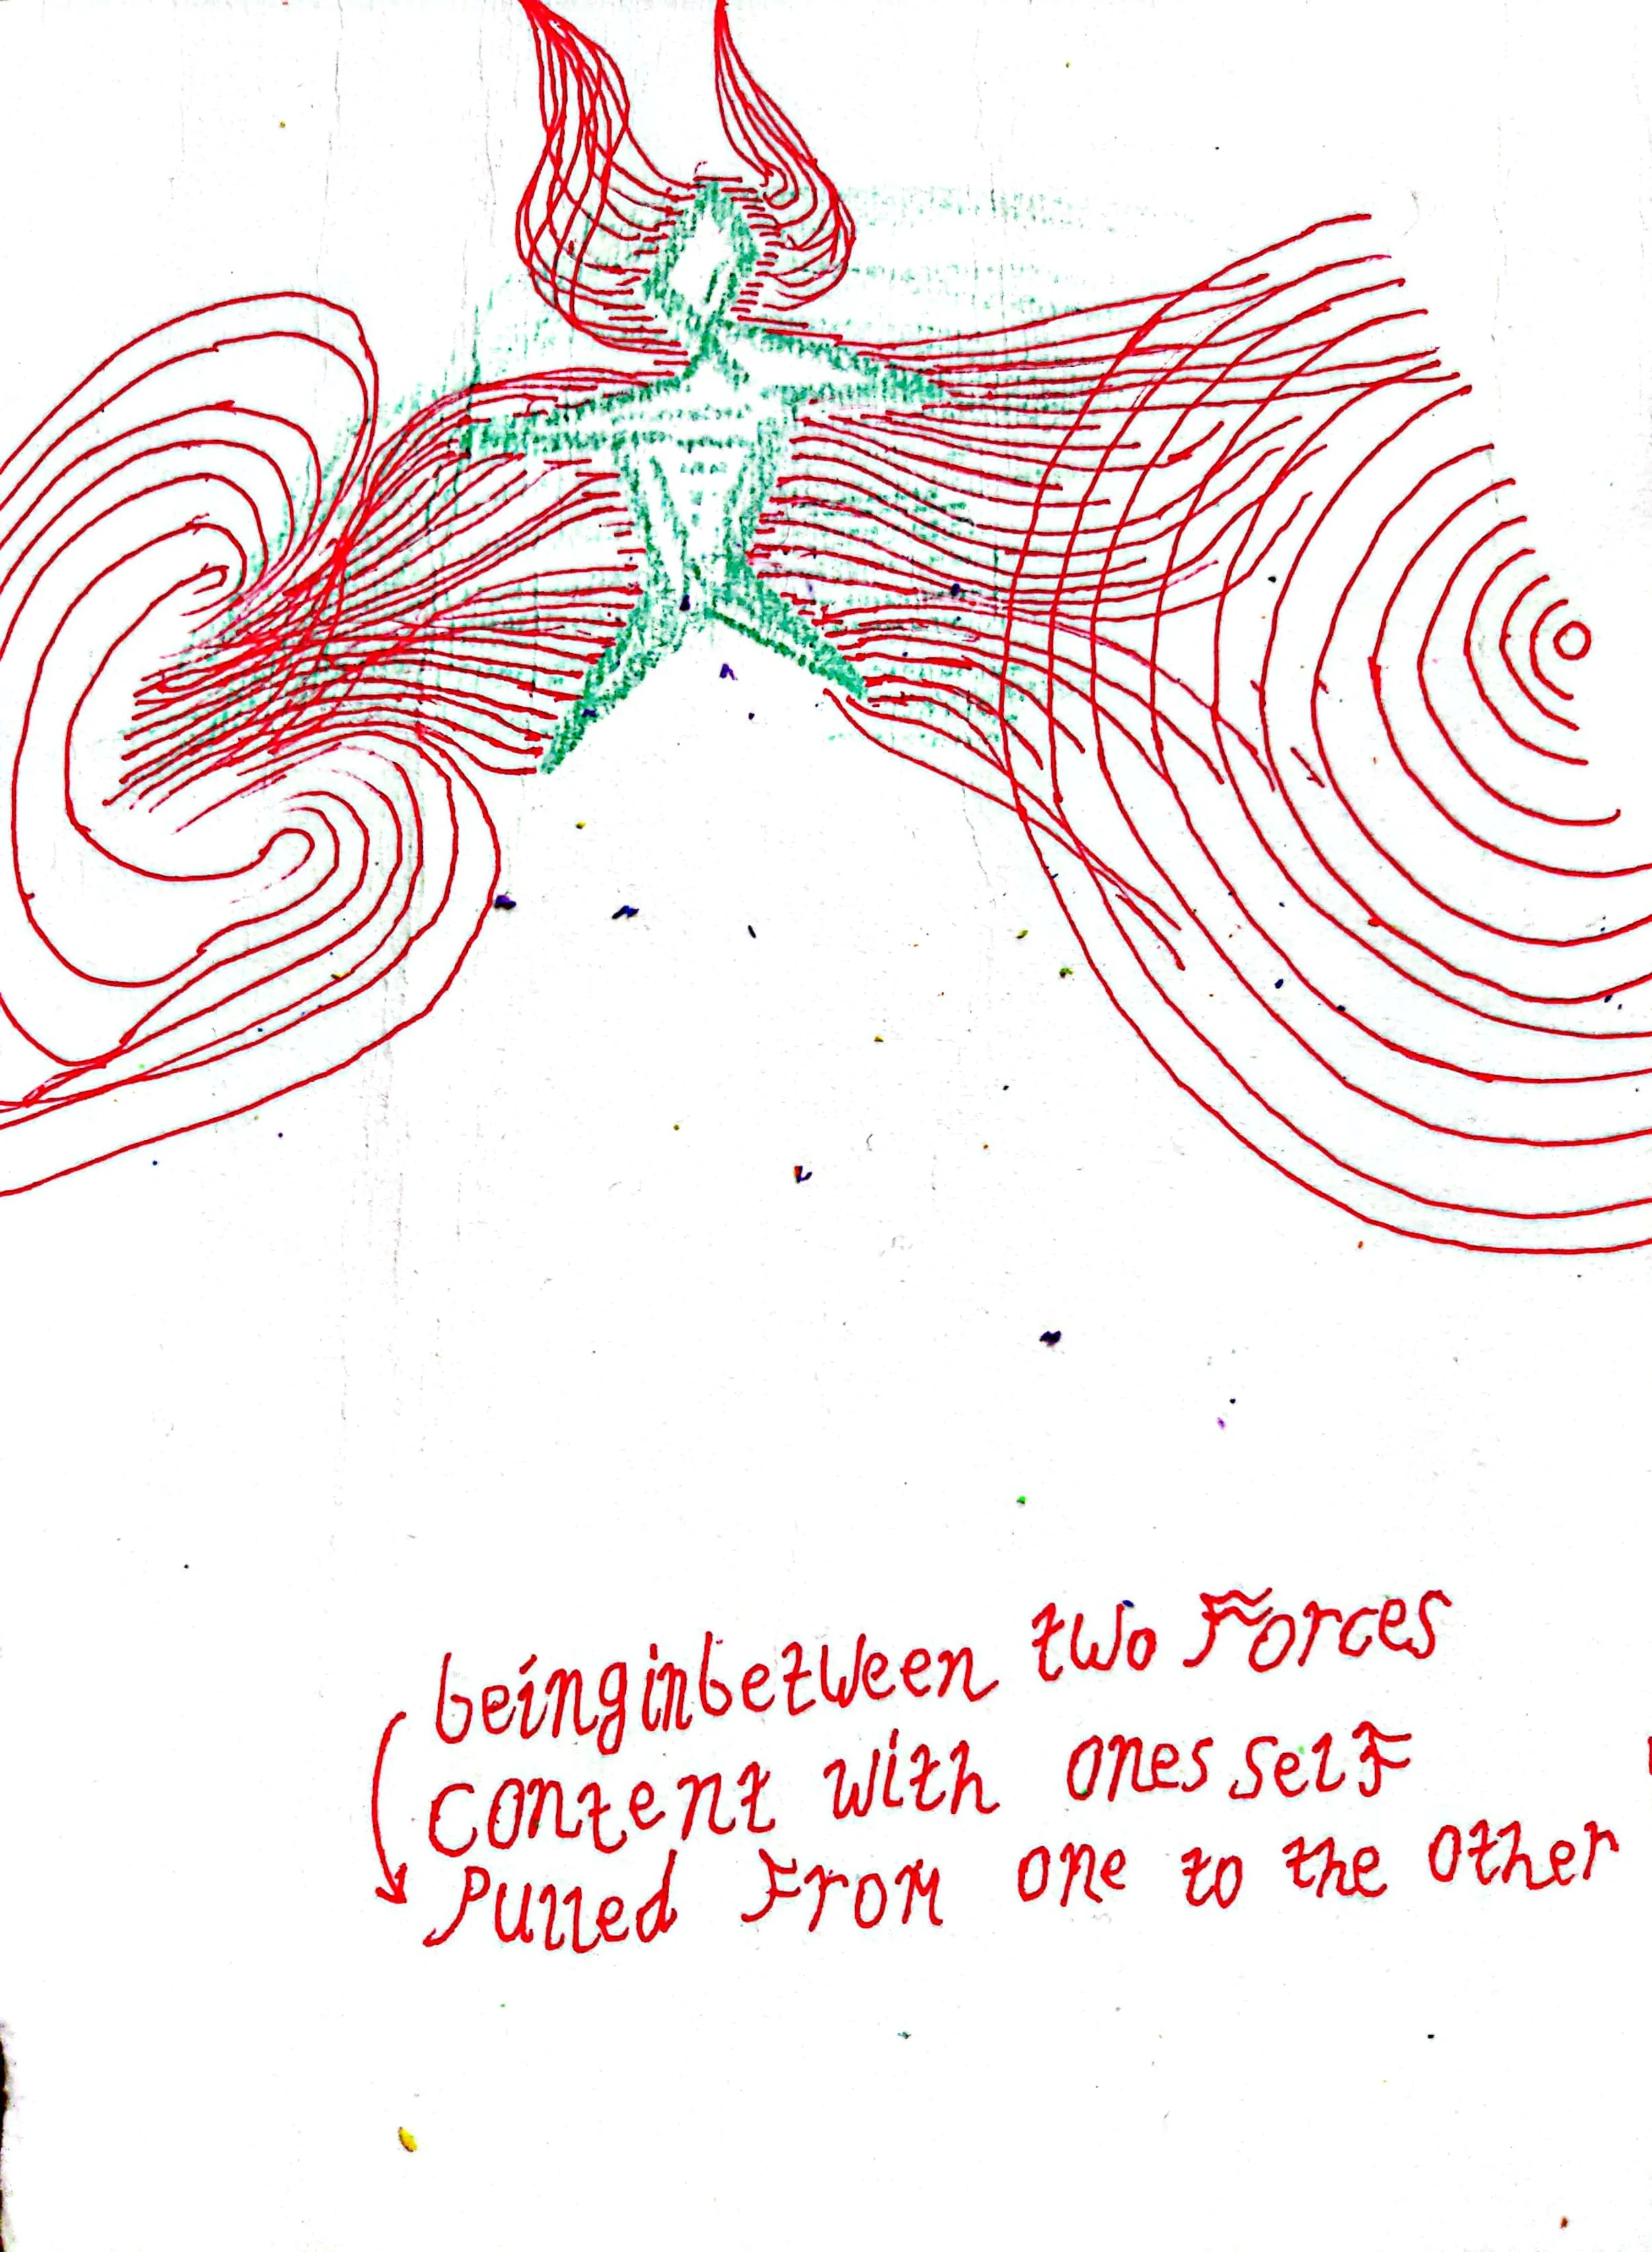 beinginbetween two Forces
content with ones self
Pulled From one to the other